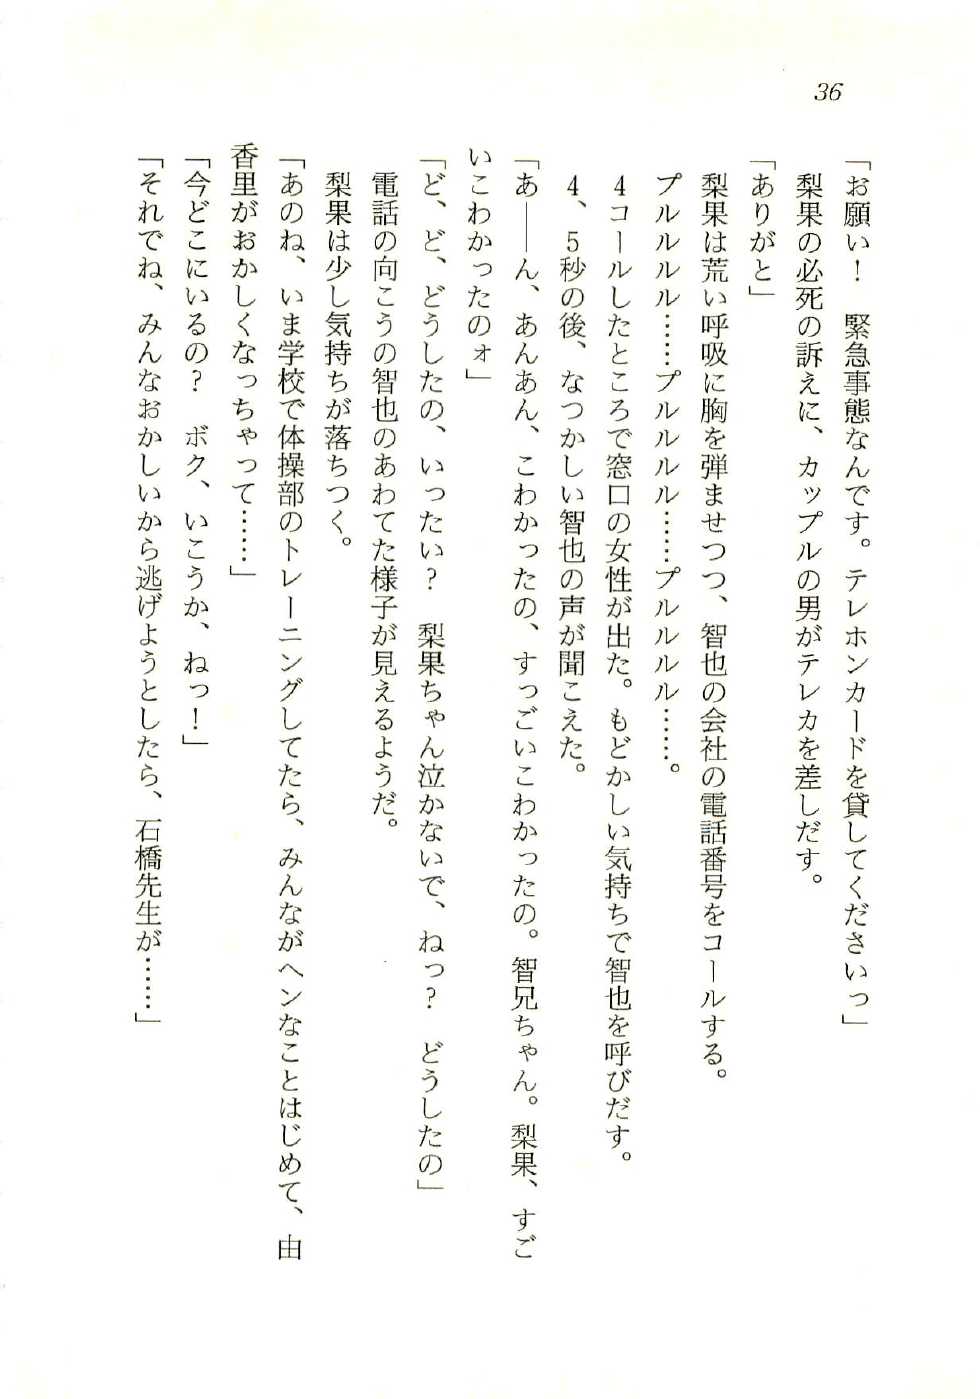 36
「お願い！　緊急事態なんです。テレホンカードを貸してくださいっ」
　梨果の必死の訴えに、カップルの男がテレカを差しだす。
「ありがと」
　梨果は荒い呼吸に胸を弾ませつつ、智也の会社の電話番号をコールする。
　プルルルル……プルルルル……プルルルル……。
　4コールしたところで窓口の女性が出た。もどかしい気持ちで智也を呼びだす。
　4、5秒の後、なつかしい智也の声が聞こえた。
「あ――ん、あんあん、こわかったの、すっごいこわかったの。智兄ちゃん。梨果、すご
いこわかったのォ」
「ど、ど、どうしたの、いったい？　梨果ちゃん泣かないで、ねっ？　どうしたの」
　電話の向こうの智也のあわてた様子が見えるようだ。
　梨果は少し気持ちが落ちつく。
「あのね、いま学校で体操部のトレーニングしてたら、みんながヘンなことはじめて、由
香里がおかしくなっちゃって……」
「今どこにいるの？　ボク、いこうか、ねっ！」
「それでね、みんなおかしいから逃げようとしたら、石橋先生が……」